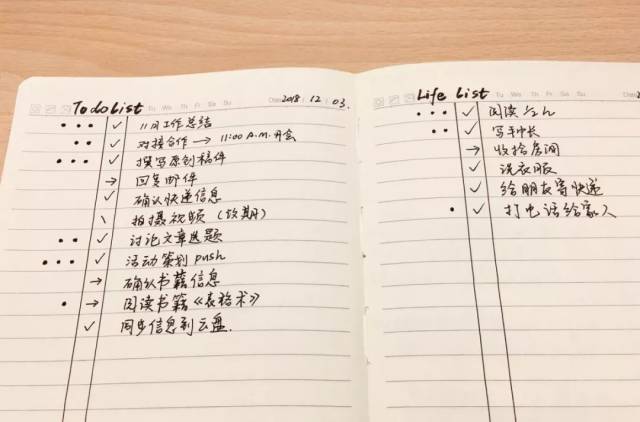 Todo List Tu We Th Fr Sa Su Date 2018 / 12 / 03.
••• ✓ 11月工作总结
•• ✓ 对接合作 → 11:00 A.M. 开会
••• ✓ 撰写原创稿件
→ 回复邮件
✓ 确认快递信息
\ 拍摄视频（改期）
•• ✓ 讨论文章选题
••• ✓ 活动策划 push
→ 确认书籍信息
• → 阅读书籍《表格术》
✓ 同步信息到云盘.
Life List Tu We Th Fr Sa Su Date 2
••• ✓ 阅读 1/2 h
•• ✓ 写手帐
→ 收拾房间
✓ 洗衣服
✓ 给朋友寄快递
• ✓ 打电话给家人